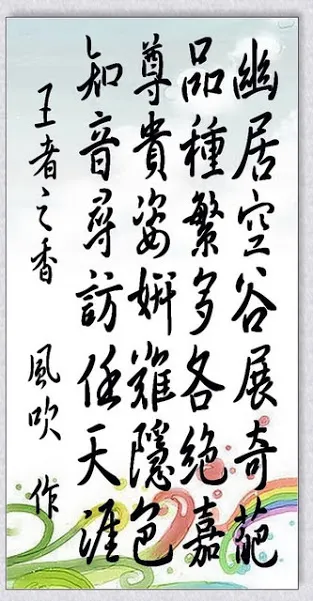 幽居空谷展奇葩
品種繁多各絶嘉
尊貴姿妍難隱色
知音尋訪任天涯
王者之香 風吹 作